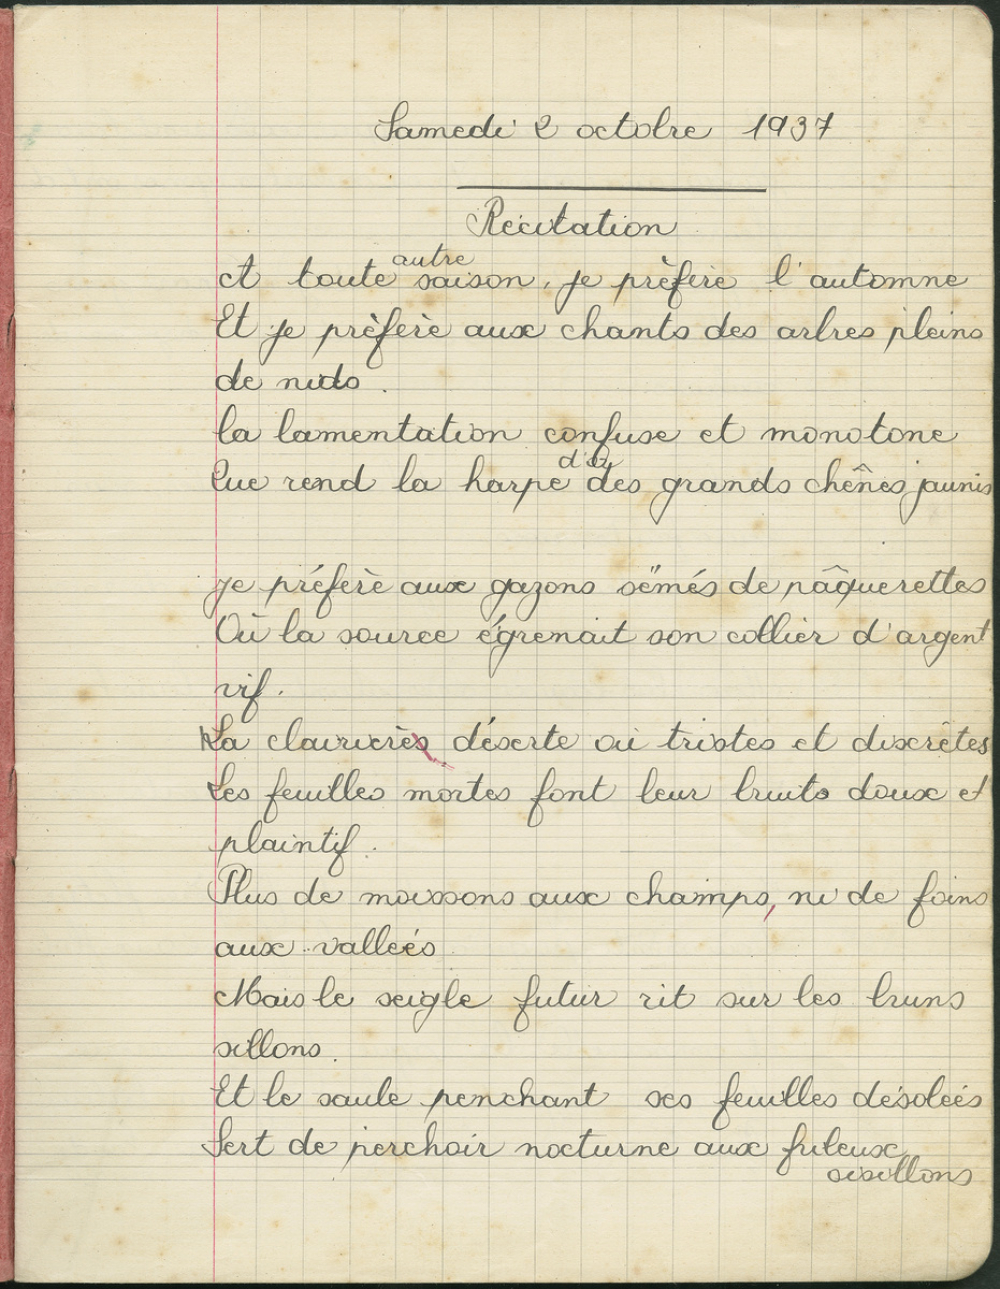 Samedi 2 octobre 1937
Récitation
A toute autre saison, je préfère l'automne
Et je préfère aux chants des arbres pleins
de nids.
la lamentation confuse et monotone
Que rend la harpe d'or des grands chênes jaunis
Je préfère aux gazons sëmés de pâquerettes
Où la source égrenait son collier d'argent
vif.
La clairières déserte où tristes et discrêtes
Les feuilles mortes font leur bruits doux et
plaintif.
Plus de moissons aux champs, ni de foins
aux vallées
Mais le seigle futur rit sur les bruns
sillons.
Et le saule penchant ses feuilles désolées
Sert de perchoir nocturne aux frileux
oisillons